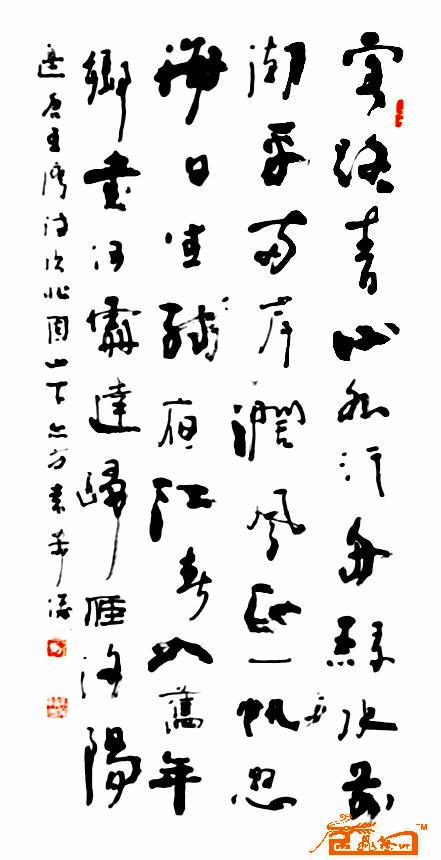 客路青山外行舟綠水前
潮平兩岸濶風正一帆懸
海日生殘夜江春入舊年
鄉書何處達歸雁洛陽
邊唐王灣詩次北固山下